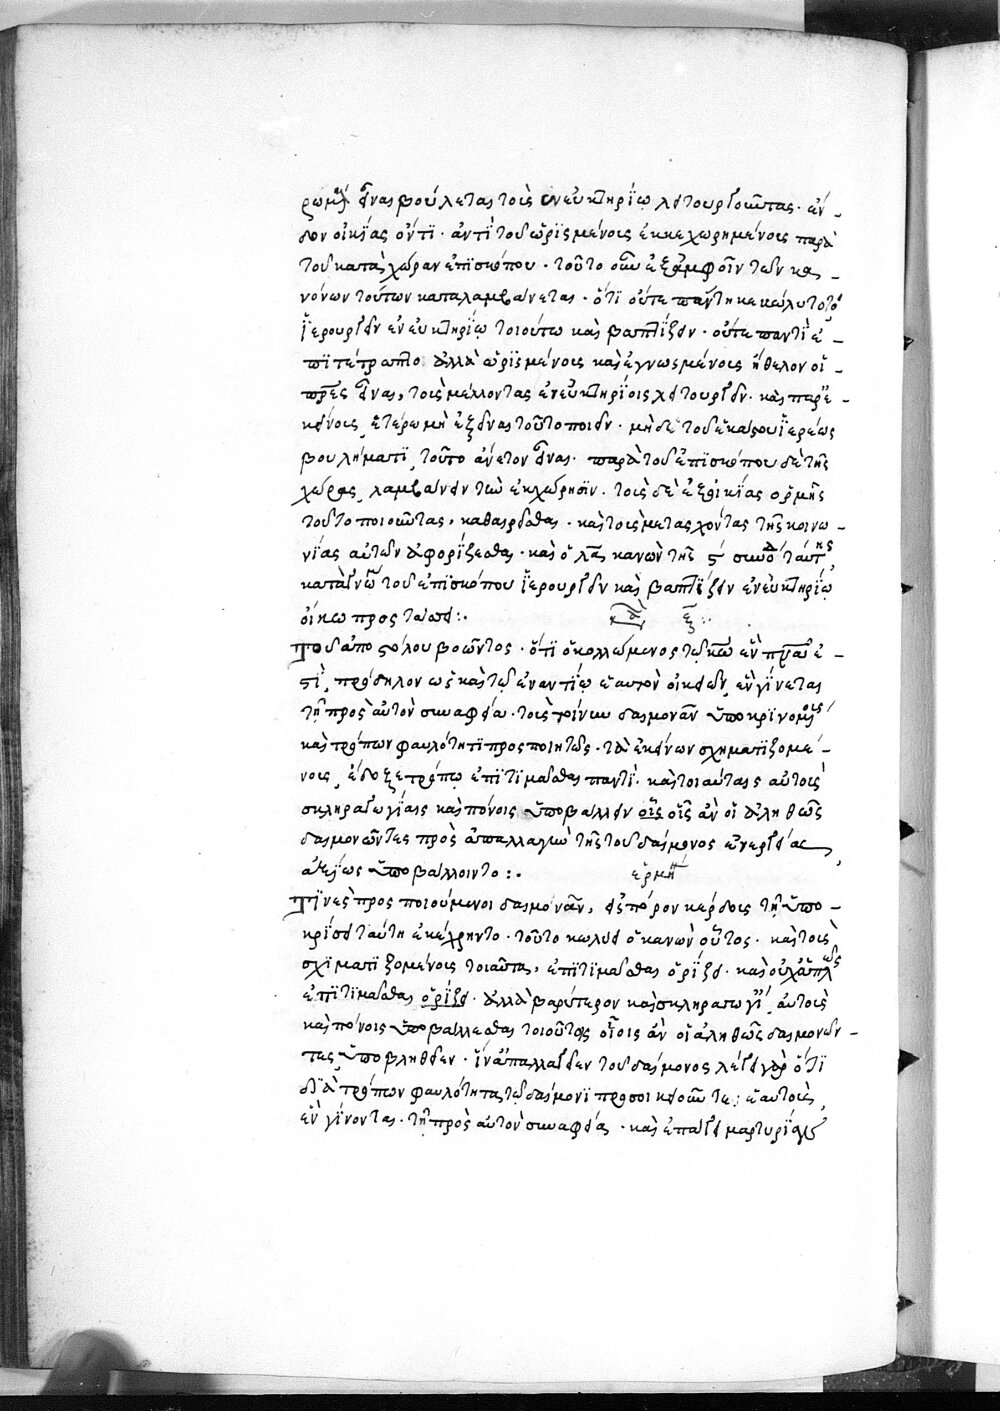 ρωμένους εἶναι βούλεται τοὺς ἐν εὐκτηρίῳ λειτουργοῦντας· ἔν-
δον οἰκίας ὄντι· ἀντὶ τοῦ ὡρισμένοις ἐκκεχωρημένοις παρὰ
τοῦ κατὰ χώραν ἐπισκόπου· τοῦτο οὖν ἐξ ἀμφοῖν τῶν κα-
νόνων τούτων καταλαμβάνεται· ὅτι οὔτε πάντη κεκώλυτο τὸ
ἱερουργεῖν ἐν εὐκτηρίῳ τοιούτω καὶ βαπτίζειν· οὔτε παντὶ ἐ-
πιτέτραπτο ἀλλὰ ὡρισμένοις καὶ ἐγνωσμένοις ἤθελον οἱ
πρες εἶναι, τοὺς μέλλοντας ἐν εὐκτηρίοις λειτουργεῖν· καὶ παρ' ἐ-
κείνοις, ἑτέρω μὴ ἐξεῖναι τοῦτο ποιεῖν· μηδὲ τοῦ ἑκάστου ἱερέως
βουλήματι, τοῦτο ἀνετον εἶναι· παρὰ τοῦ ἐπισκόπου δὲ τῆς
χώρας, λαμβάνειν τὴν ἐκχώρησιν· τοὺς δὲ ἐξ οἰκείας ὁρμῆς
τοῦτο ποιοῦντας, καθαιρεῖσθαι· καὶ τοὺς μετασχόντας τῆς κοινω-
νίας αὐτῶν ἀφορίζεσθαι· καὶ ὁ λα κανὼν τῆς ϛ συνόδ ταύτης
κατὰ γνώ τοῦ ἐπισκόπου ἱερουργεῖν καὶ βαπτίζειν ἐν εὐκτηρίῳ
οἴκω προστάττει:· ξ:·
Τοῦ ἀποστόλου βοῶντος· ὅτι ὁ κολλώμενος τῷ κω ἓν πνα ἐ-
στί, πρόδηλον ὡς καὶ τῷ ἐναντίῳ ἑαυτὸν οἰκειῶν, ἓν γίνεται
τῇ πρὸς αὐτὸν συναφεία· τοὺς τοίνυν δαιμονᾶν ὑποκρινομένους
καὶ τρόπων φαυλότητι προσποιητῶς· τὰ ἐκείνων σχηματιζομέ-
νους, ἔδοξε τρόπῳ ἐπιτιμᾶσθαι παντί· καὶ τοιαύταις αὐτοὺς
σκληραγωγίαις καὶ πόνοις ὑποβάλλειν οἷς οἷς ἂν οἱ ἀληθῶς
δαιμονῶντες πρὸς ἀπαλλαγὴν τῆς τοῦ δαίμονος ἐνεργείας
ἀξίως ὑποβάλλοιντο:· ἑρμη
Τινὲς προσποιούμενοι δαιμονᾶν, εἰς πόρον κέρδους τῇ ὑπο-
κρίσει ταύτη ἐκέχρηντο· τοῦτο κωλύει ὁ κανὼν οὗτος· καὶ τοὺς
σχιματιζομένους τοιαῦτα, ἐπιτιμᾶσθαι ὁρίζει· καὶ οὐχ ἁπλῶς
ἐπιτιμᾶσθαι ὁρίζει· ἀλλὰ βαρύτερον καὶ σκληραγωγί, αὐτοὺς
καὶ πόνοις ὑποβάλλεσθαι τοιούτοις οἵοις ἂν οἱ ἀληθῶς δαιμονῶν-
τες ὑποβληθεῖεν· ἵν' ἀπαλλαγεῖεν τοῦ δαίμονος λέγει γὰρ ὅτι
διὰ τρόπων φαυλότητα τῷ δαίμονι προσοικειοῦντες ἑαυτοὺς,
ἓν γίνονται· τῇ πρὸς αὐτὸν συναφεία· καὶ ἐπάγει μαρτυρίαν